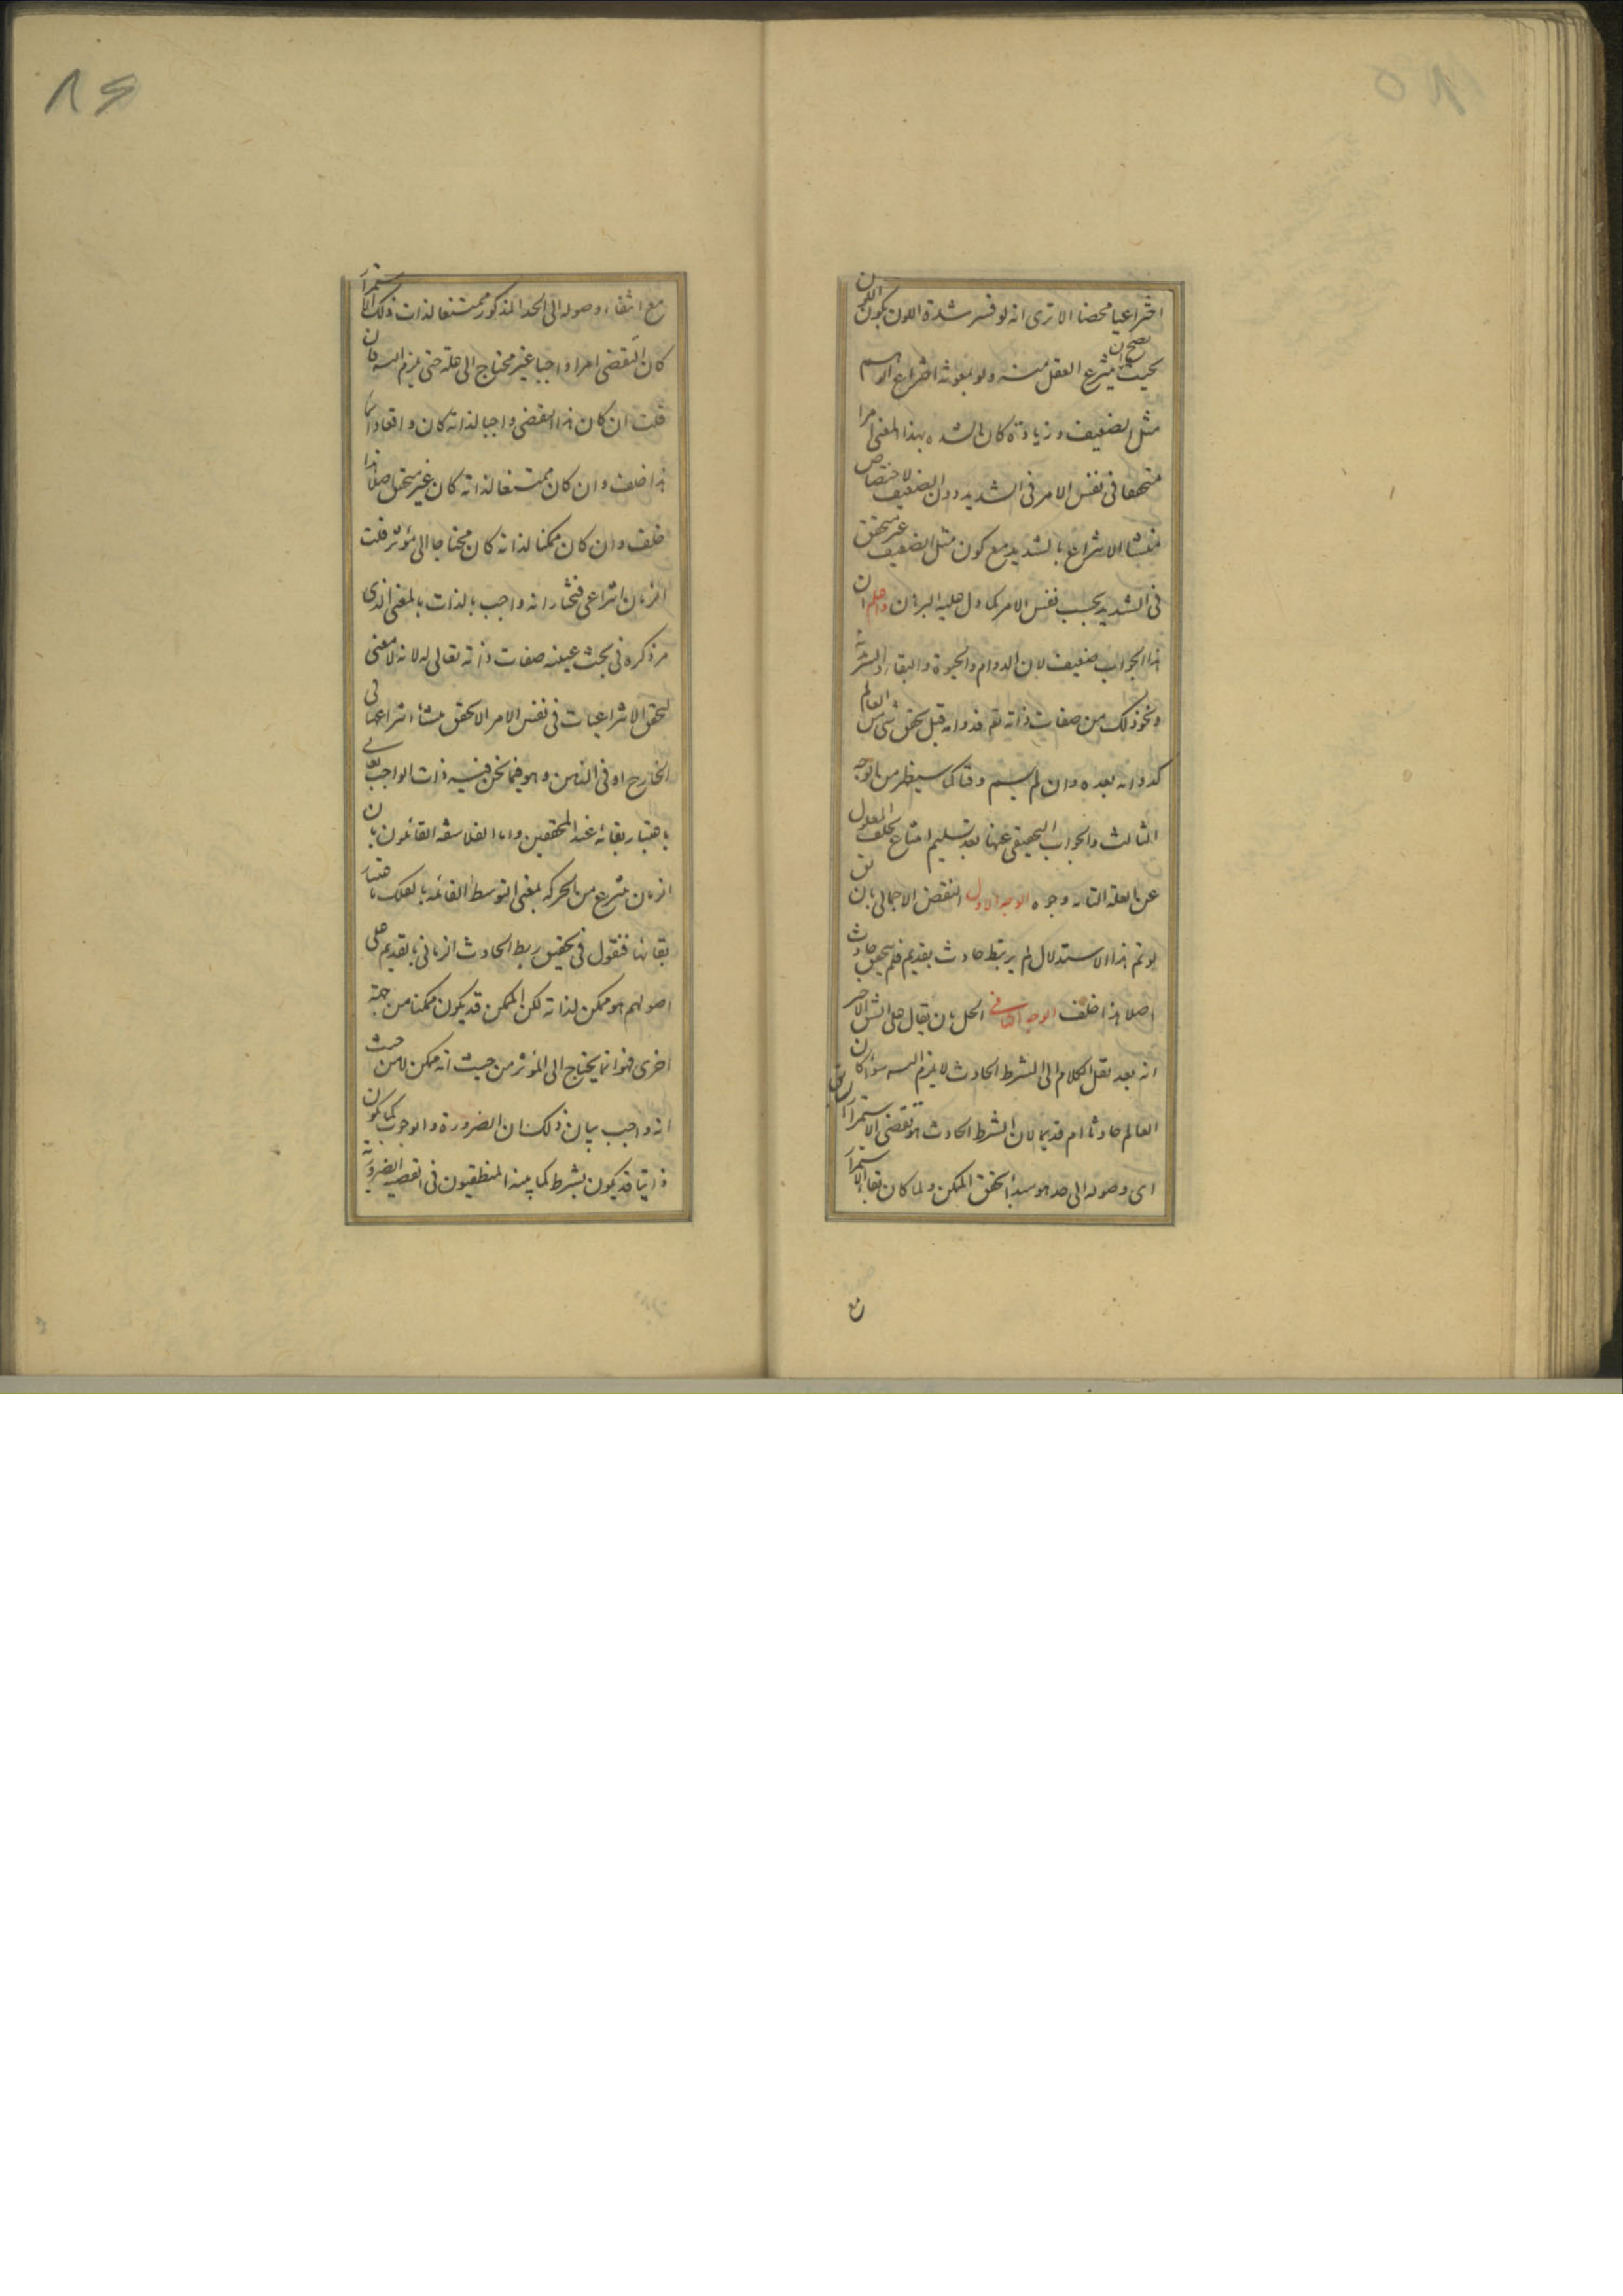 اختراعيا محضا الا ترى انه لو فسر شدة اللون بكون اللون
بحيث يصح ان ينتزع العقل منه ولو بمعونة اختراع الوهم
مثل الضعيف وزيادة كان الشدة بهذا المعنى امرا
متحققا فى نفس الامر فى الشديد دون الضعيف لاختصاص
منشأ الانتزاع بالشديد مع كون مثل الضعيف غير متحقق
فى الشديد بحسب نفس الامر كما دل عليه البرهان واعلم ان
هذا الجواب ضعيف لان الدوام والحيوة والبقاء والسرمدية
ونحو ذلك من صفات ذاته تع فدوامه قبل تحقق شئ من العالم
كدوامه بعده وان لم يسم وقتا كما سيظهر من الوجه
الثالث والجواب التحقيقى عنها بعد تسليم امتناع تخلف المعلول
عن العلة التامة وجوه الوجه الاول النقض الاجمالى بان
لو تم هذا الاستدلال لم يرتبط حادث بقديم فلم يتحقق حادث
اصلا هذا خلف الوجه الثانى الحل بان يقال على الشق الاخير
انه بعد نقل الكلام الى الشرط الحادث لا يلزم التسه سواء كان
العالم حادثا ام قديما لان الشرط الحادث هو تقضى الاستمرار السابق
اى وصوله الى حد هو مبدأ تحقق الممكن ولما كان بقاء الاستمرار
مع انتفاء وصوله الى الحد المذكور ممتنعا لذات ذلك الاستمرار
كان التقضى امرا واجبا غير محتاج الى علة حتى يلزم التسه فان
قلت ان كان هذا التقضى واجبا لذاته كان واقعا دائما
هذا خلف وان كان ممتنعا لذاته كان غير متحقق اصلا هذا
خلف وان كان ممكنا لذاته كان محتاجا الى مؤثر قلت
الزمان انتزاعى فنختار انه واجب بالذات بالمعنى الذى
مر ذكره فى بحث عينية صفات ذاته تعالى له لانه لا معنى
لتحقق الانتزاعيات فى نفس الامر الا تحقق منشأ انتزاعها فى
الخارج او فى الذهن وهو فيما نحن فيه ذات الواجب تعالى
باعتبار بقائه عند المحققين واما الفلاسفة القائلون بان
الزمان منتزع من الحركة بمعنى التوسط القائمة بالفلك باعتبار
بقائها فنقول فى تحقيق ربط الحادث الزمانى بالقديم على
اصولهم هو ممكن لذاته لكن الممكن قد يكون ممكنا من جهة
اخرى فهو انما يحتاج الى المؤثر من حيث انه ممكن لا من حيث
انه واجب بيان ذلك ان الضرورة والوجوب كما يكون
ذاتيا قد يكون بشرط كما بينه المنطقيون فى القضية الضرورية